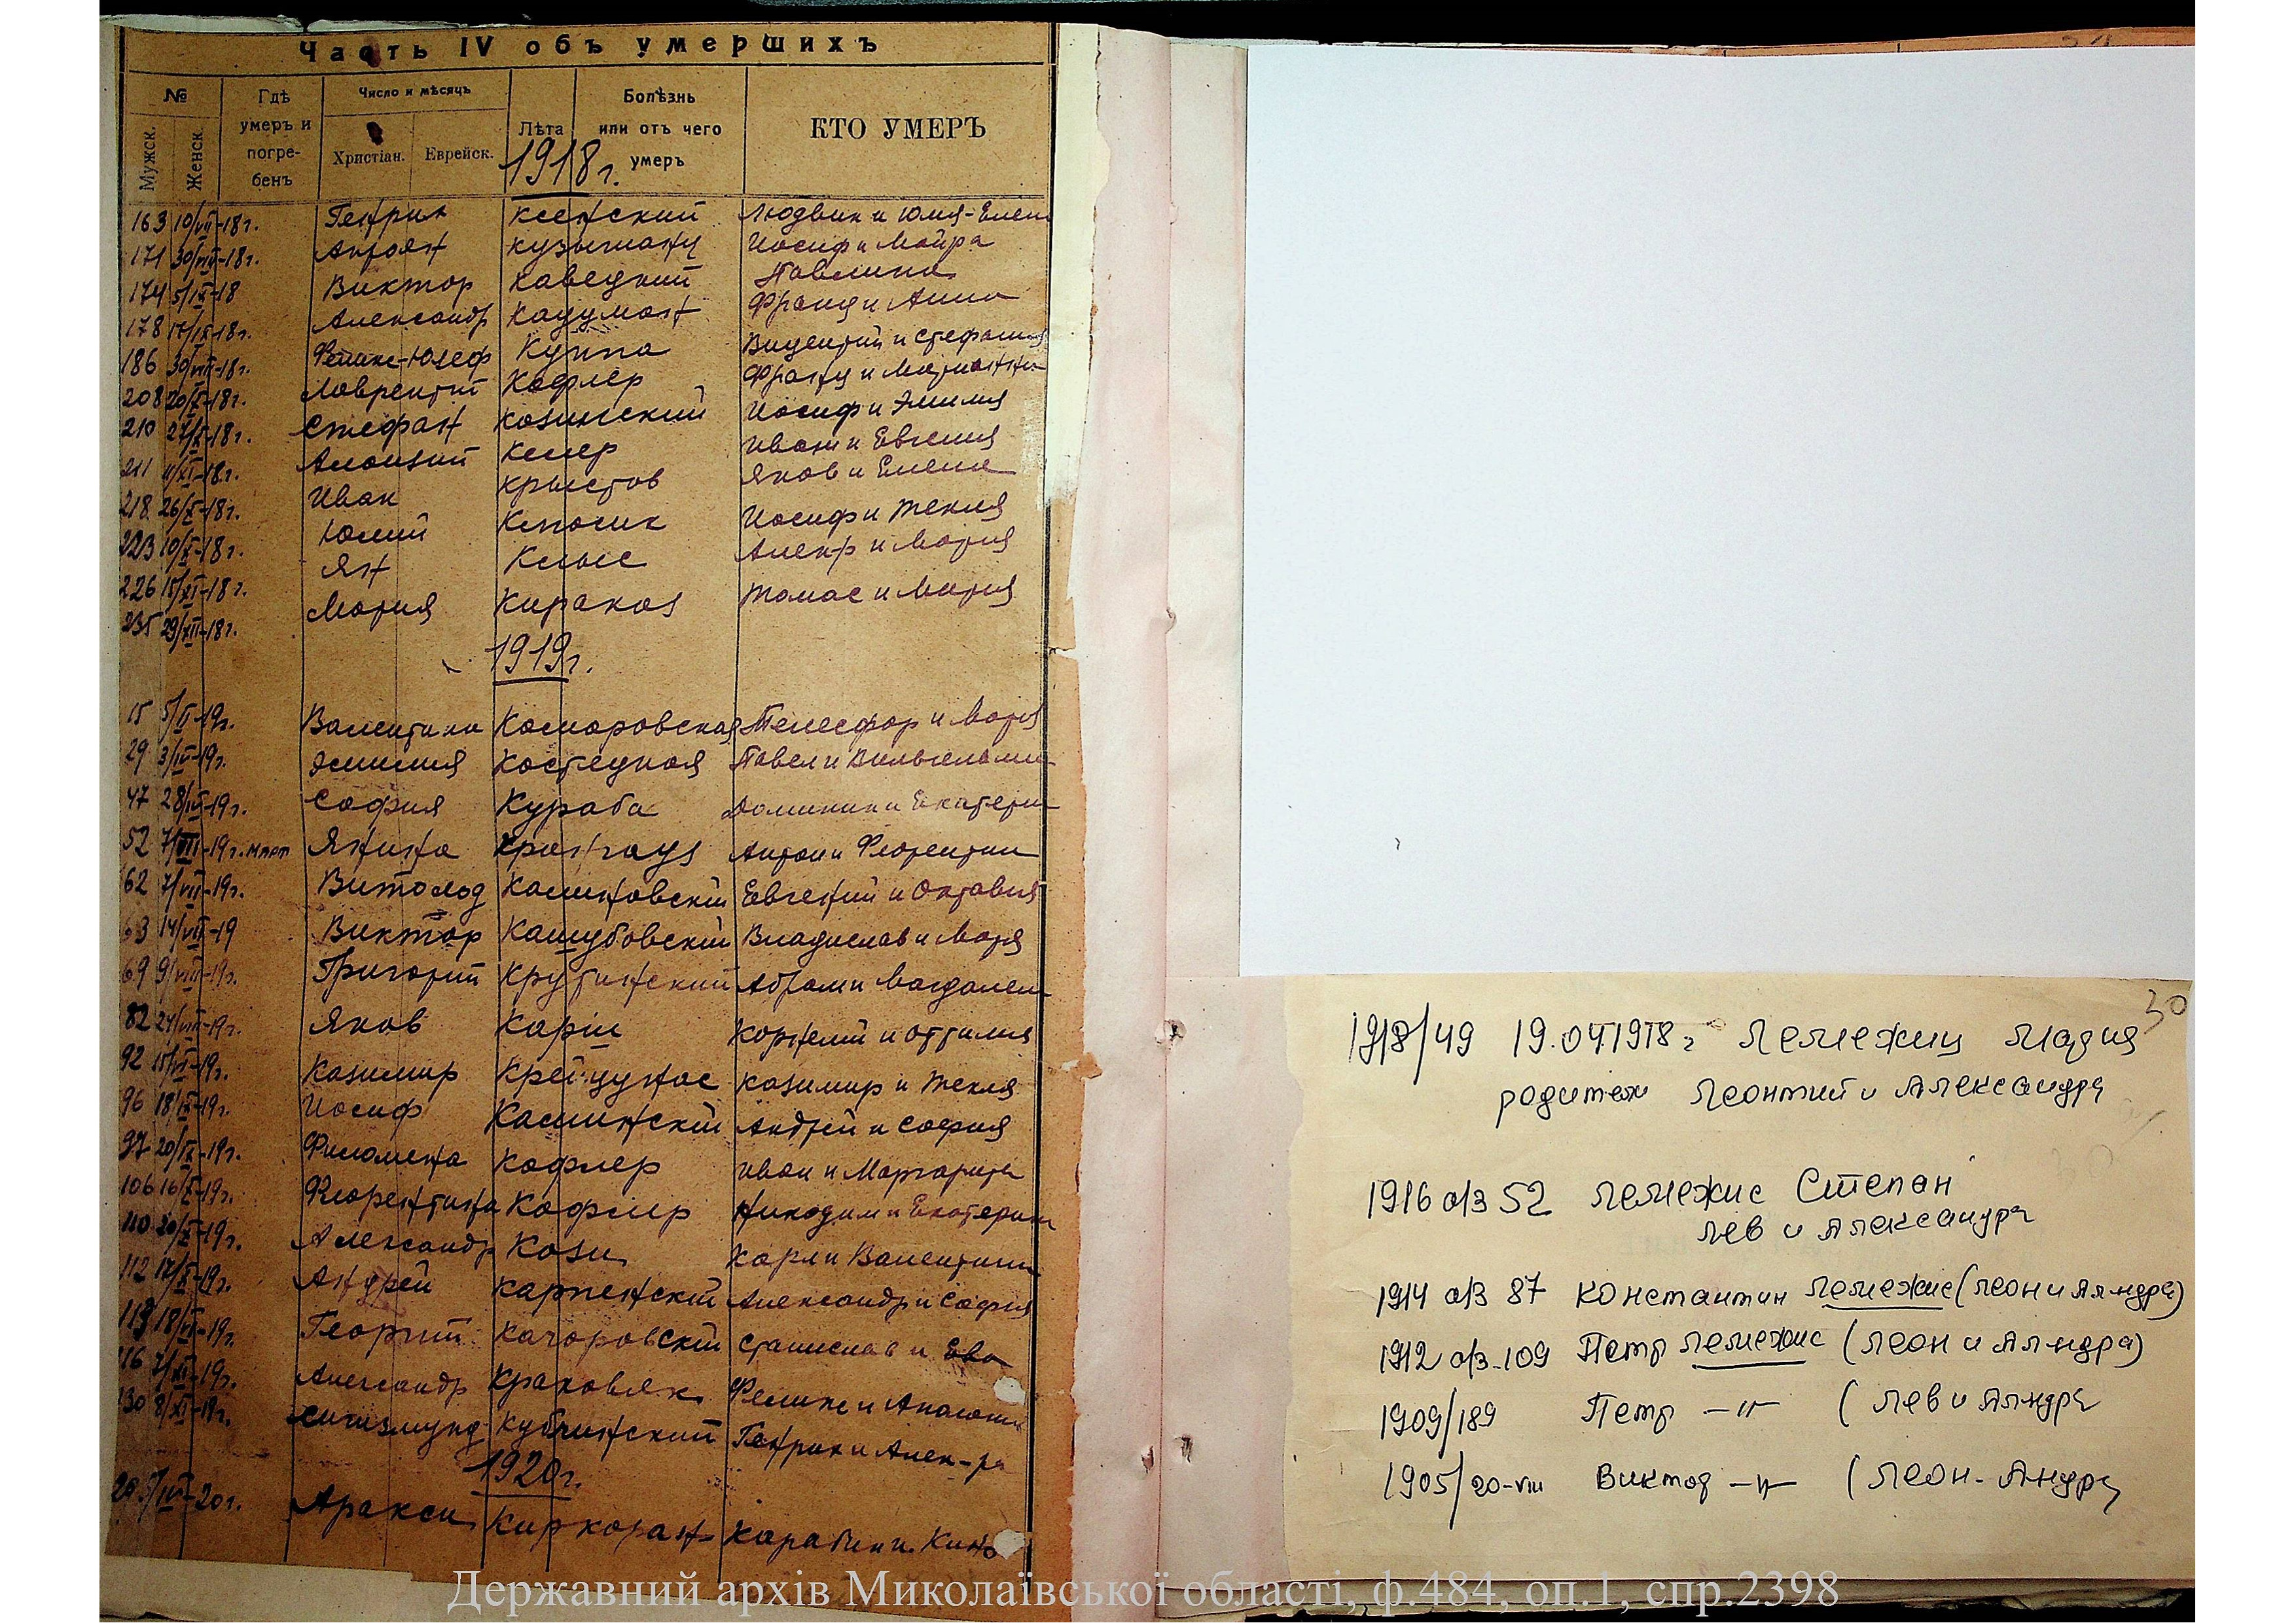 Часть IV объ умершихъ
№
Мужск.
Женск.
Гдѣ умеръ и погре-бенъ
Число и мѣсяцъ
Христіан.
Еврейск.
Лѣта
Болѣзнь или отъ чего умеръ
КТО УМЕРЪ
1918 г.
163 10/VII-18г. Генрик Ксенский Людвик и Юлия-Елен
171 30/VIII-18г. Антон Иосиф и Мойра
174 5/IX-18 Виктор Кавецкий Павлина
178 17/IX-18г. Александр Каууман Франц и Анна
186 30/VIII-18г. Феликс-Юзеф Куппа Винцентий и Стефания
208 20/X-18г. Лаврентий Кофлер Франц и Марианна
210 27/X-18г. Стефан Козинский Иосиф и Эмилия
211 11/XI-18г. Алоизий Келер Иван и Евгения
218 26/X-18г. Иван Крыстов Яков и Елена
223 10/X-18г. Юлий Иосиф и Текля
226 15/XI-18г. Ян Клыс Алекр и Мария
235 29/XII-18г. Мария Киракоз Томас и Мария
1919г.
15 5/II-19г. Валентина Коморовская Телесфор и Мария
29 3/IV-19г. Эмилия Костецкая Павел и Вильгельми
47 28/IV-19г. София Кураба Доминик и Екатери
52 7/III-19г. март Янина Антон и Флорентин
62 7/VII-19г. Витольд Калиновскій Евгений и Октавия
63 14/VII-19 Виктор Кашубовскій Владислав и Мария
69 9/VIII-19г. Григорий Крутинский Абрам и Магдален
82 24/VIII-19г. Яков Карш Корнелий и Оттилия
92 15/VI-19г. Казимир Крейцунас Казимир и Текля
96 18/IX-19г. Иосиф Каминскій Андрей и София
97 20/IX-19г. Филомена Кофлер Иван и Маргарита
106 16/X-19г. Флорентина Кофлер Никодим и Екатерин
110 20/X-19г. Александр Кози Карл и Валентина
112 17/X-19г. Андрей Карпенскій Александр и София
113 18/XI-19г. Георгий Качоровскій Станислав и Ева
116 7/XI-19г. Александр Краковяк Феликс и Аполони
130 8/XI-19г. Сигизмунд Кублинский Генрик и Алек-ра
1920г.
20 5/IV-20г. Аракси Киркоран Карабин и
30
1918/49 19.04.1918г Лемежиц Мария
родители Леонтий и Александра
1916 а/з 52 Лемежис Степан
Лев и Александра
1914 а/з 87 Константин Лемежис (Леон и Ал-ндра)
1912 а/з-109 Петр Лемежис (Леон и Ал-ндра)
1909/189 Петр -"- (Лев и Ал-ндра
1905/20-VIII Виктор -"- (Леон-Андра
Державний архів Миколаївської області, ф.484, оп.1, спр.2398